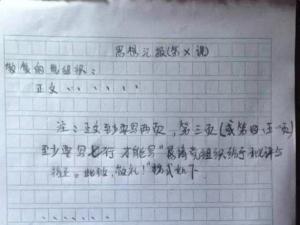 思想汇报(第×课)
敬爱的党组织:
正文......
注:正文至少要写两页,第三页(或第四、五一页)
至少要写七行 才能写"恳请党组织给予批评与
指正。此致,敬礼!"格式如下
......